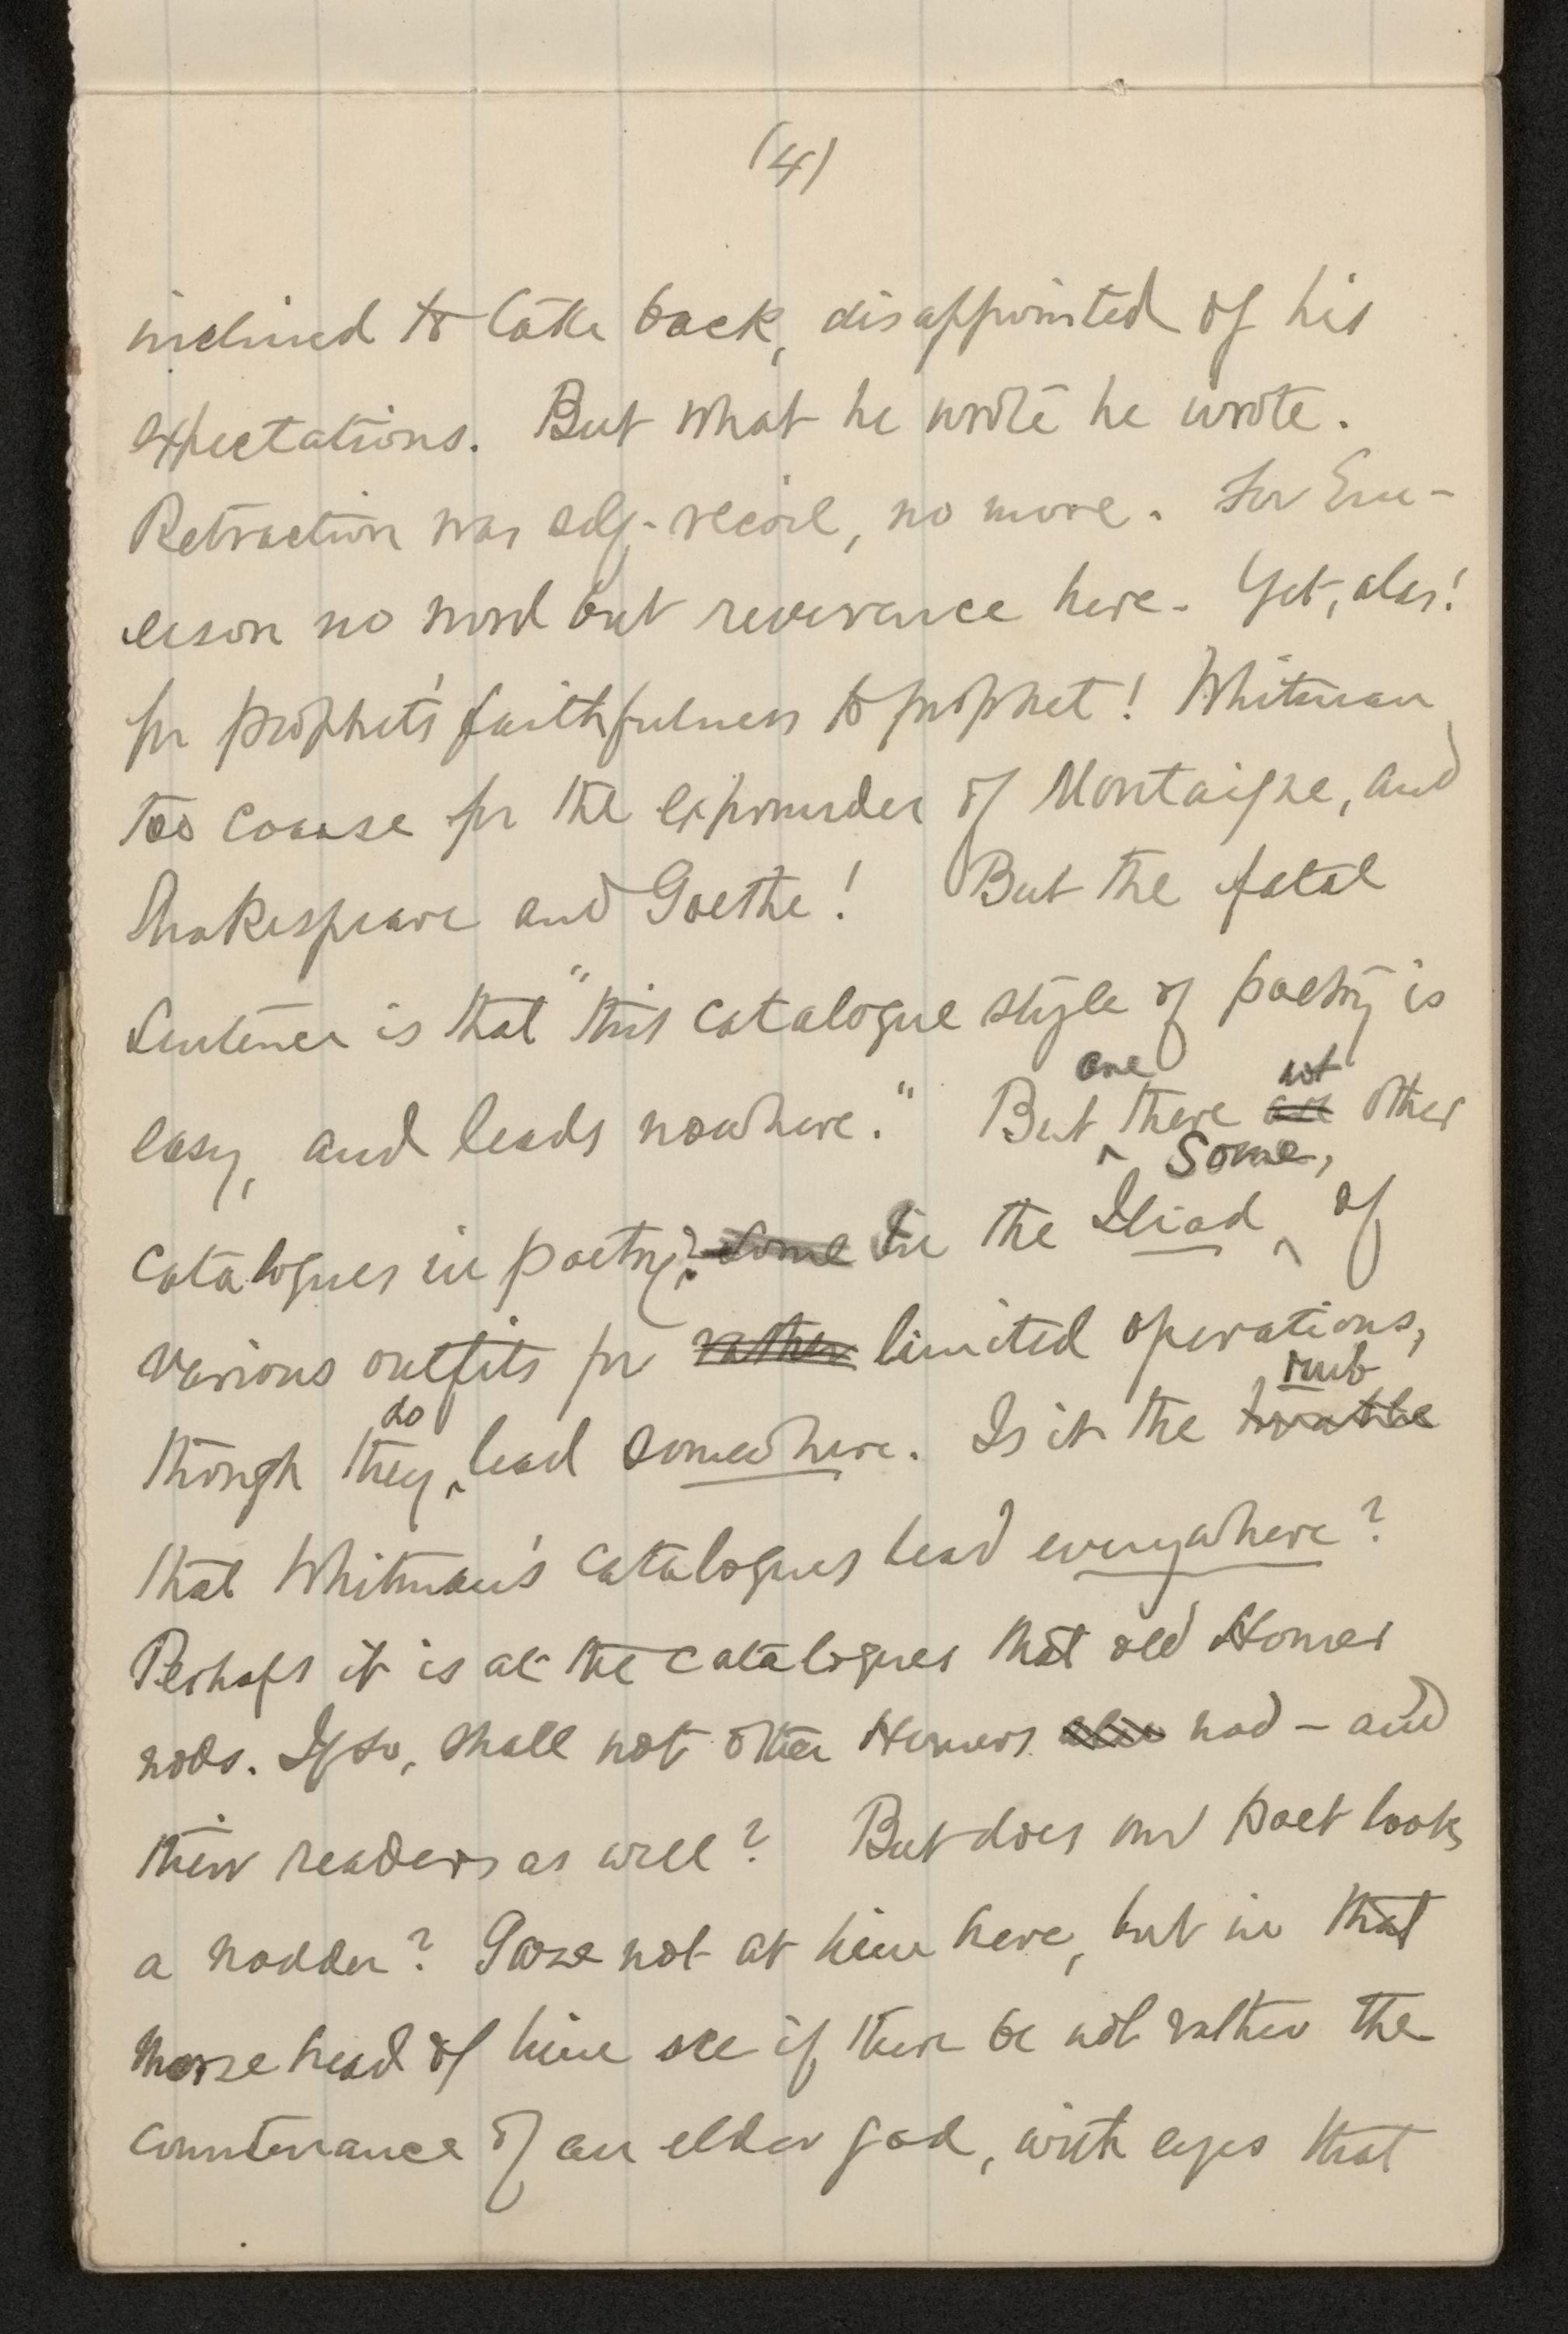 (4)
inclined to take back, disappointed of his
expectations. But what he wrote he wrote.
Retraction was self-recoil, no more. For Em-
erson no word but reverence here. Yet, alas!
for prophet's faithfulness to prophet! Whitman
too coarse for the expounder of Montaigne, and
Shakespeare and Goethe! But the fatal
sentence is that "this catalogue style of poetry is
easy, and leads nowhere." But are there not other
catalogues in poetry? In the Iliad some, of
various outfits for rather limited operations,
though they do lead somewhere. Is it the trouble rub
that Whitman's catalogues lead everywhere?
Perhaps it is at the catalogues that old Homer
nods. If so, shall not other Homers also nod – and
their readers as well? But does our poet look
a nodder? Gaze not at him here, but in that
Morse head of him see if there be not rather the
countenance of an elder god, with eyes that